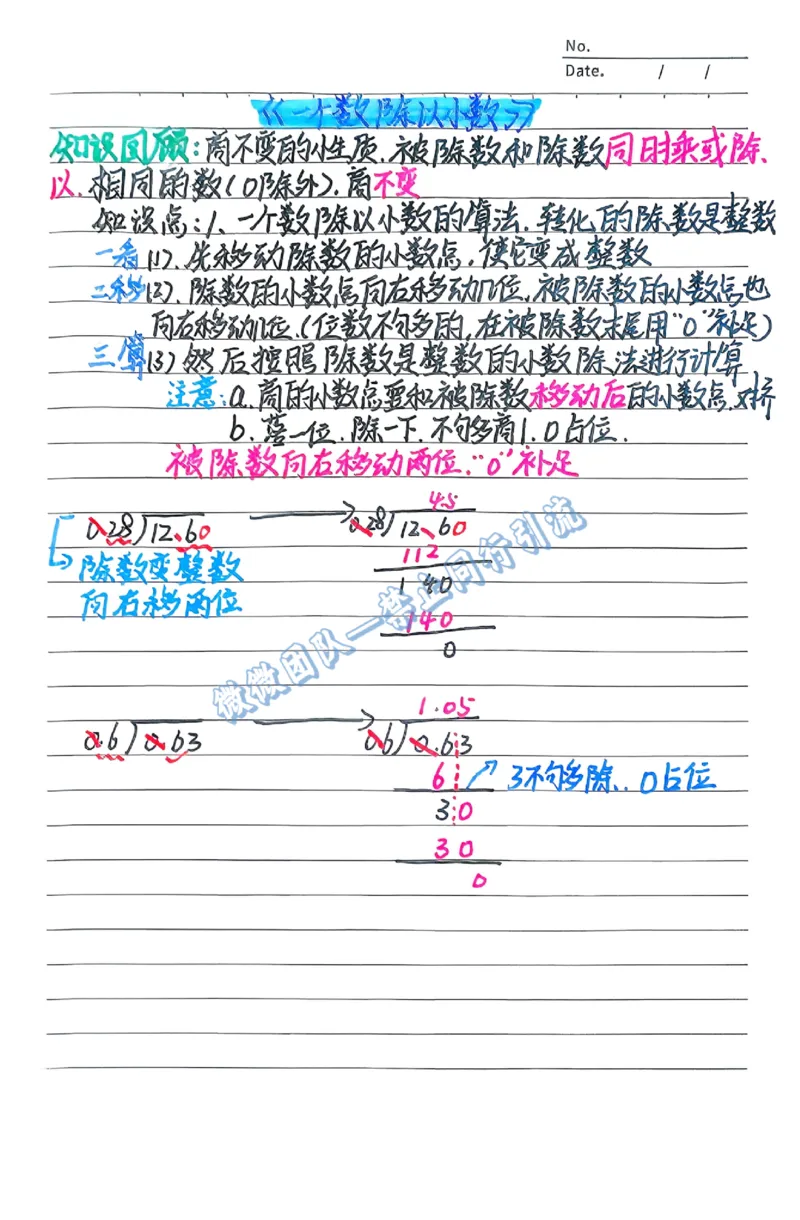 No.
Date. / /
《一个数除以小数》
知识回顾:商不变的性质.被除数和除数同时乘或除
以.相同的数(0除外).商不变
知识点:1、一个数除以小数的算法.转化的除数是整数
一看(1).先移动除数的小数点,使它变成整数
二移(2).除数的小数点向右移动几位,被除数的小数点也
向右移动几位.(位数不够的,在被除数末尾用"0"补足)
三算(3)然后按照除数是整数的小数除法进行计算
注意:a.商的小数点要和被除数移动后的小数点对挤
b.落一位.除一下.不够商1.0占位.
被除数向右移动两位."0"补足
45
0.28)12.60 0.28)12.60
112
除数变整数
140
向右移两位
140
0
微微团队一禁止同行引流
1.05
0.6)0.63 0.6)0.63
6 3不够除..0占位
30
30
0